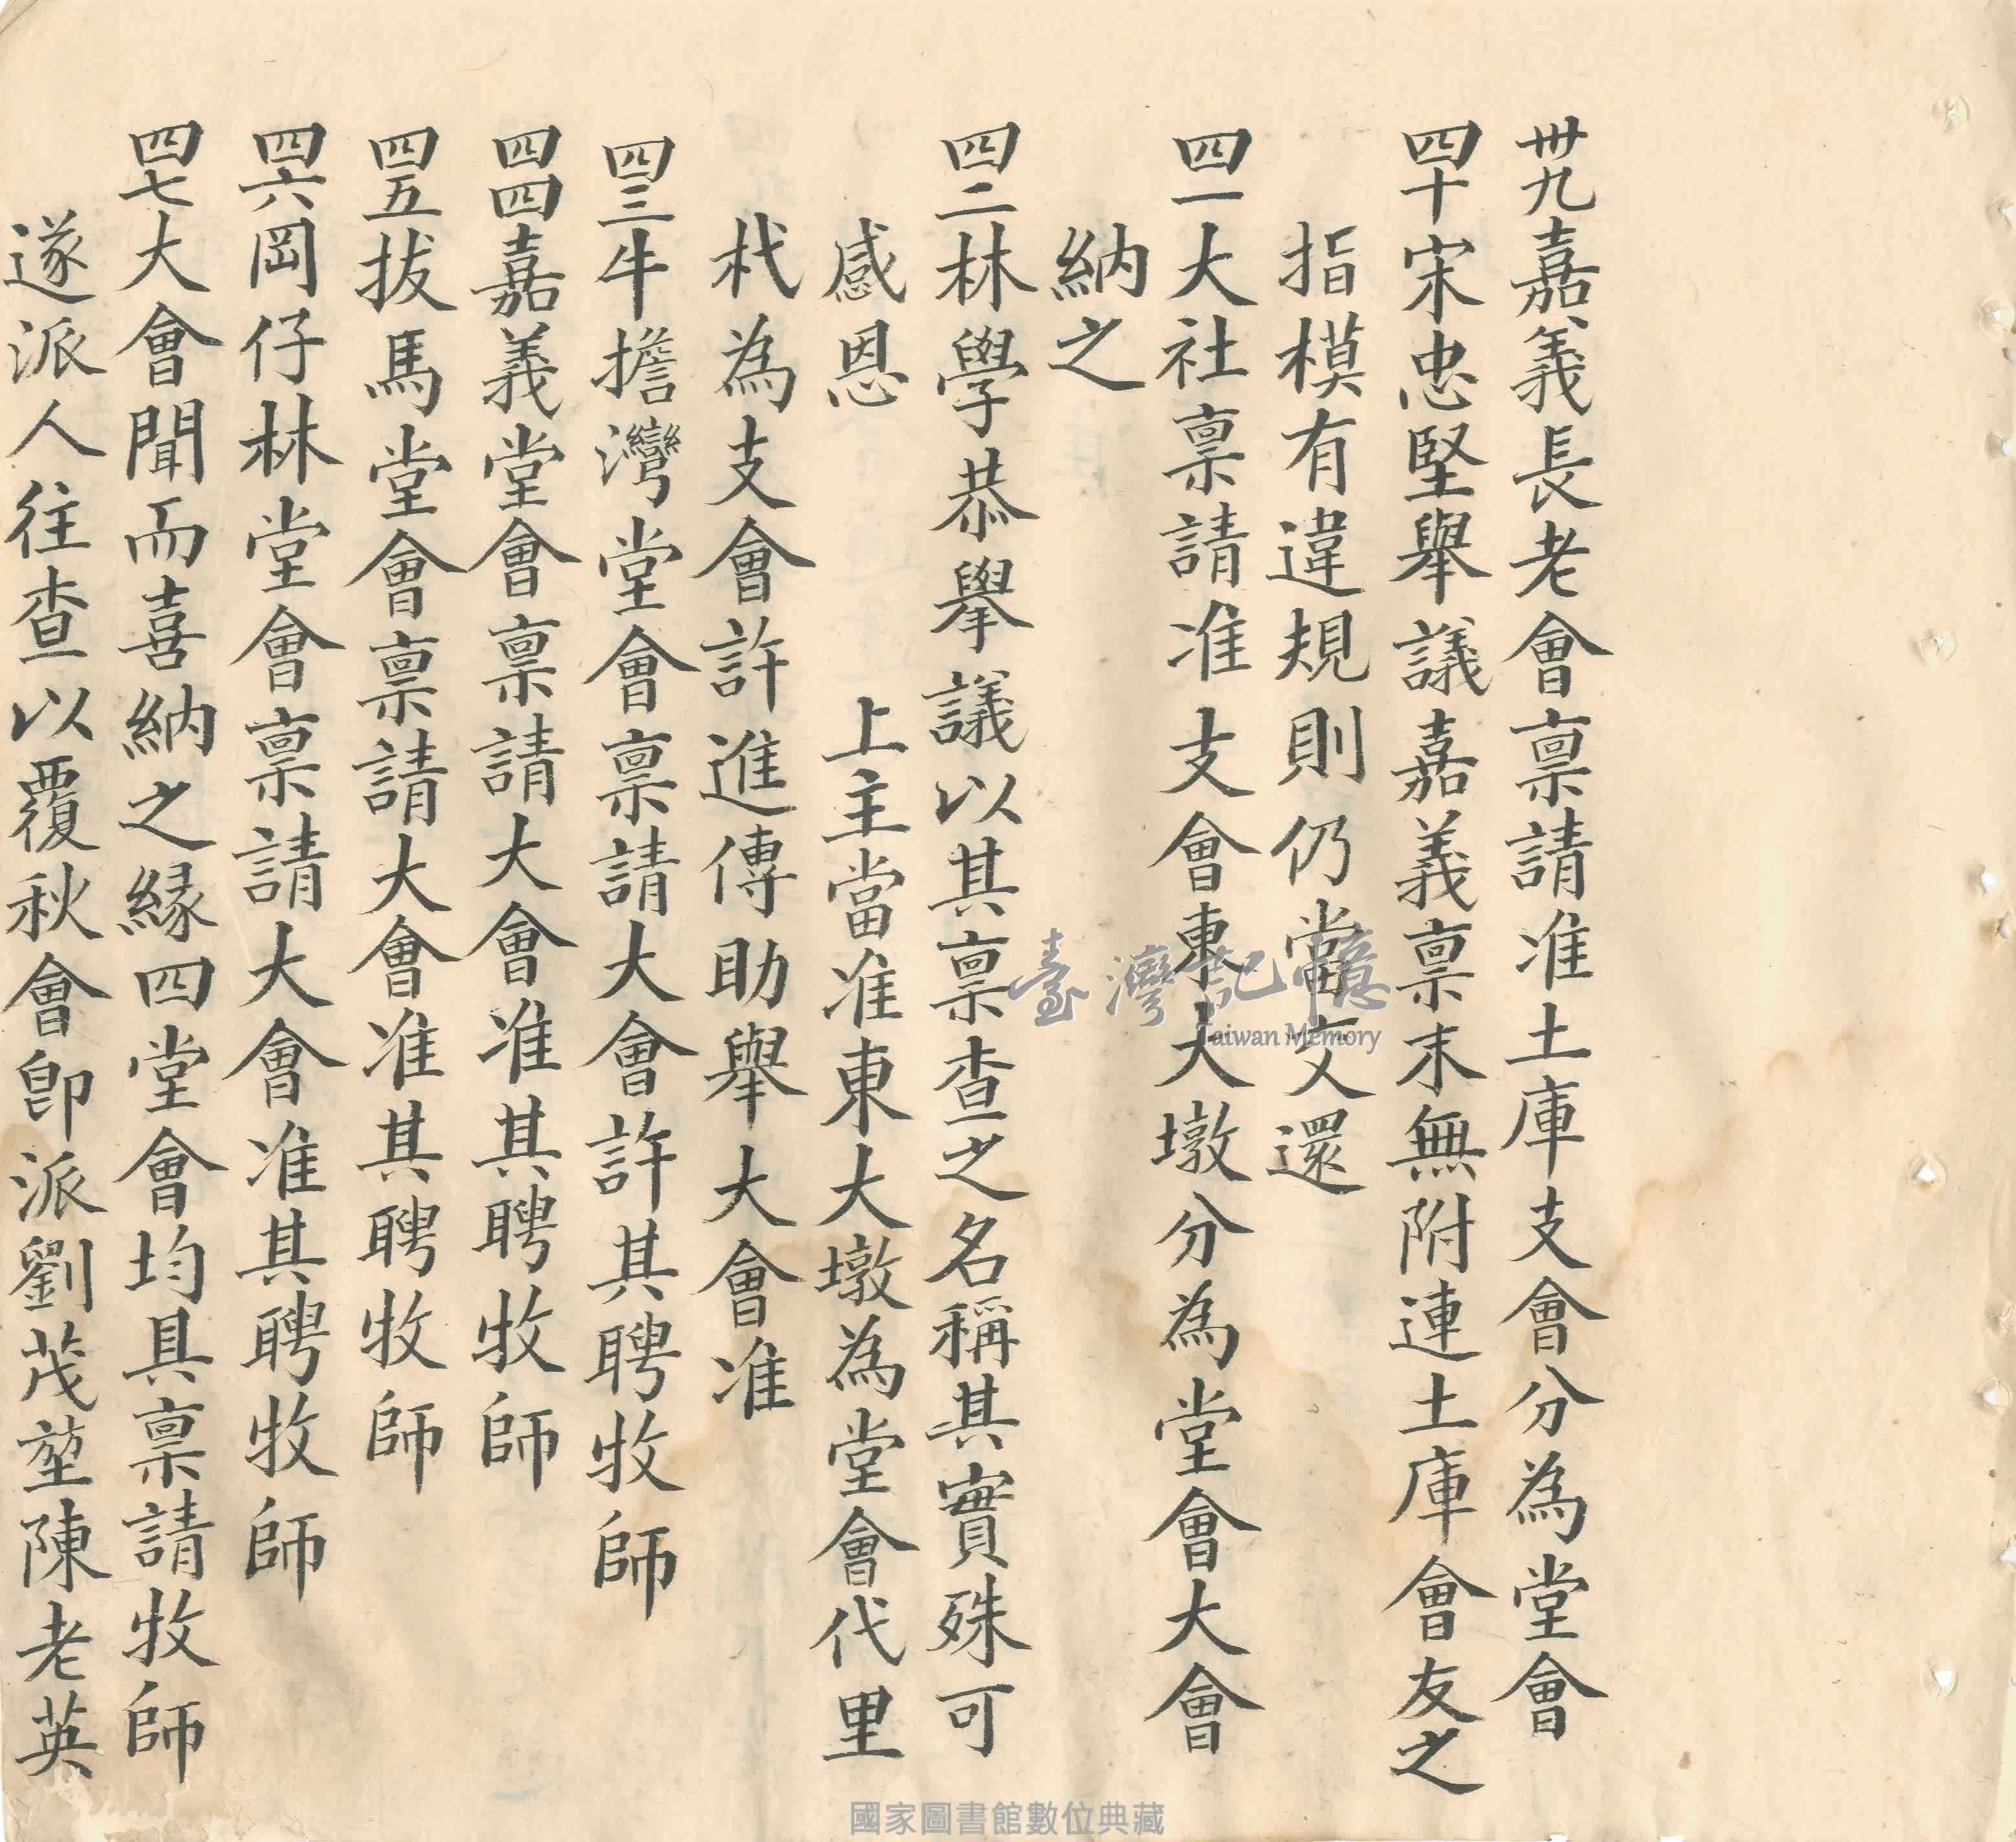 卅九嘉義長老會禀請准土庫支會分為堂會
四十宋忠堅舉議嘉義禀末無附連土庫會友之
指模有違規則仍當交還
四一大社禀請准支會東大墩分為堂會大會
納之
四二林學恭舉議以其禀查之名稱其實殊可
感恩 上主當准東大墩為堂會代里
杙為支會許進傳助舉大會准
四三牛擔灣堂會禀請大會許其聘牧師
四四嘉義堂會禀請大會准其聘牧師
四五拔馬堂會禀請大會准其聘牧師
四六岡仔林堂會禀請大會准其聘牧師
四七大會聞而喜納之緣四堂會均具禀請牧師
遂派人往查以覆秋會即派劉茂堃陳老英
臺灣記憶
Taiwan Memory
國家圖書館數位典藏